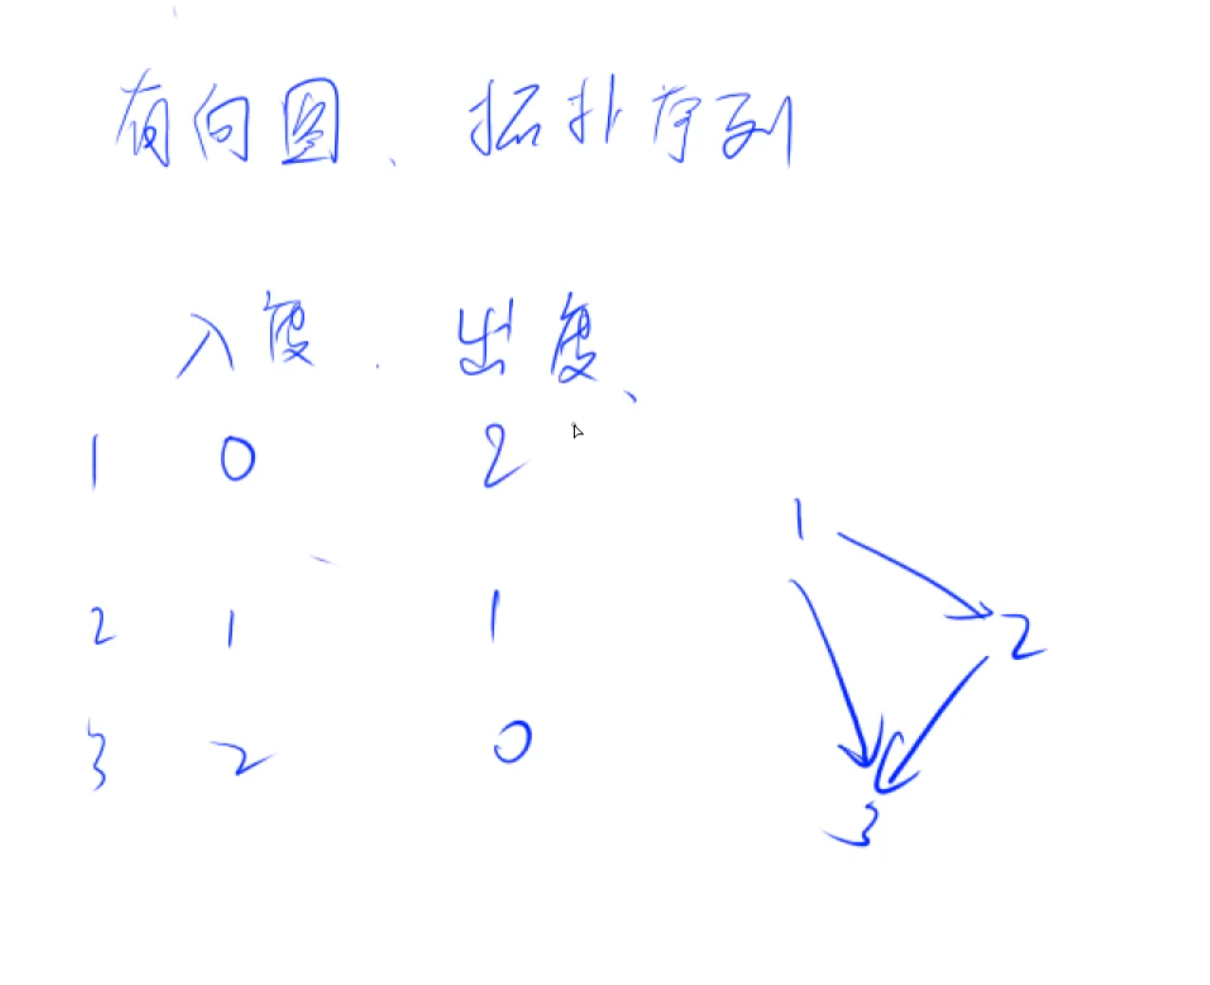 有向图、拓扑序列
入度. 出度、
1 0 2
2 1 1
3 2 0
1
2
3